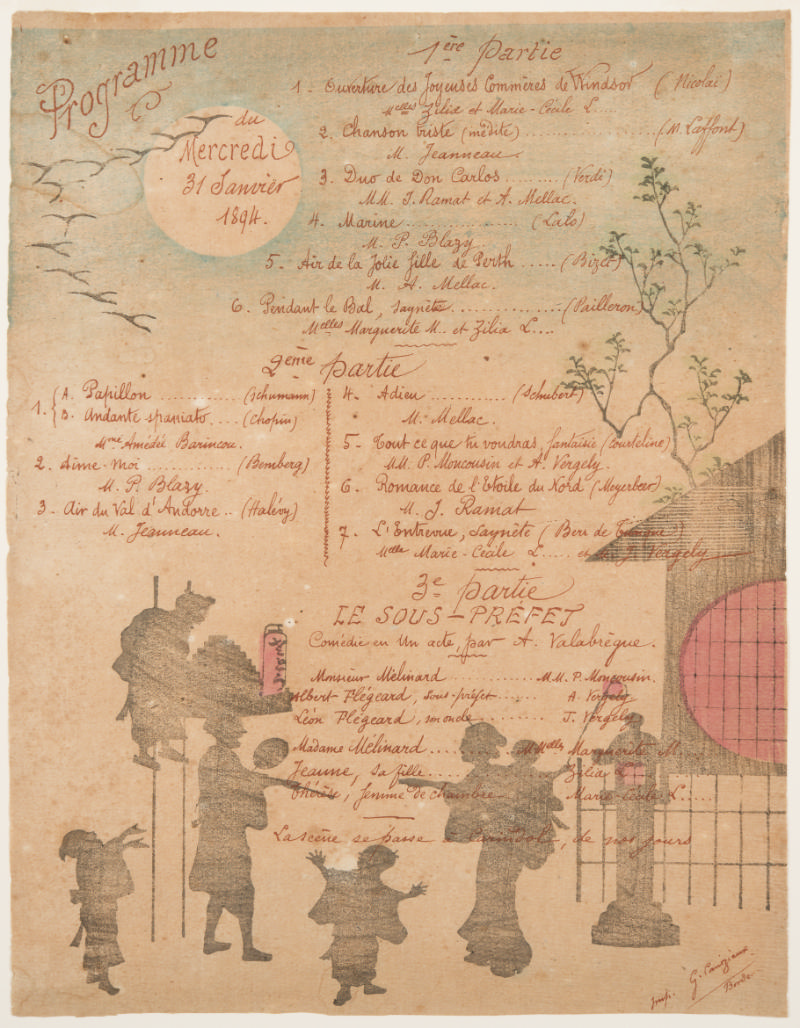 Programme
du
Mercredi
31 Janvier
1894.
1ère Partie
1 - Ouverture des Joyeuses Commères de Windsor (Nicolaï)
Melles Zilia et Marie-Cécile L.....
2. Chanson triste (inédite) .................... (N. Laffont)
M. Jeanneau.
3. Duo de Don Carlos ......... (Verdi)
MM. J. Ramat et A. Mellac.
4. Marine ................... (Lalo)
M. P. Blazy.
5 - Air de la Jolie fille de Perth ...... (Bizet)
M. A. Mellac.
6. Pendant le Bal, saynète ................ (Pailleron)
Melles Marguerite M.. et Zilia L....
2ème Partie
1. { A. Papillon .............. (Schumann)
B. Andante spaniato .... (Chopin)
Mme Amédée Barincou.
2. Aime-moi ............... (Bemberg)
M. P. Blazy.
3 - Air du Val d'Andorre .. (Halévy)
M. Jeanneau.
4 - Adieu ............. (Schubert)
M. Mellac.
5 - Tout ce que tu voudras, fantaisie (Courteline)
MM. P. Moucousin et A. Vergely.
6 - Romance de l'Etoile du Nord (Meyerbeer)
M. J. Ramat
7. L'Entrevue, Saynète (Beri de
Melle Marie-Cécile L..... et M. J. Vergely
3e partie
LE SOUS-PRÉFET
Comédie en Un acte, par A. Valabrègue.
Monsieur Mélinard ............... MM. P. Moucousin.
Albert Plégeard, sous-préfet ...... A. Vergely
Léon Plégeard, son oncle ......... J. Vergely
Madame Mélinard ............... Melles Marguerite M....
Jeanne, sa fille .................. Zilia L
Thérèse, femme de chambre Marie-Cécile L.....
La scène se passe à de nos jours
Imp. G.